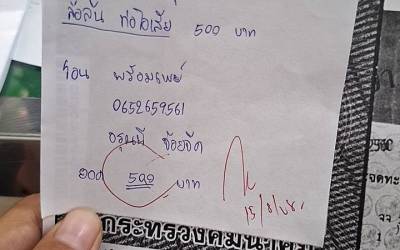 ล้อล้น ท่อไอเสีย 500 บาท
โอน พร้อมเพย์
0652659561
อรุณี จ้อยจีด
ยอด 500 บาท
15/8/68
กระทรวงคมนาคม
2560